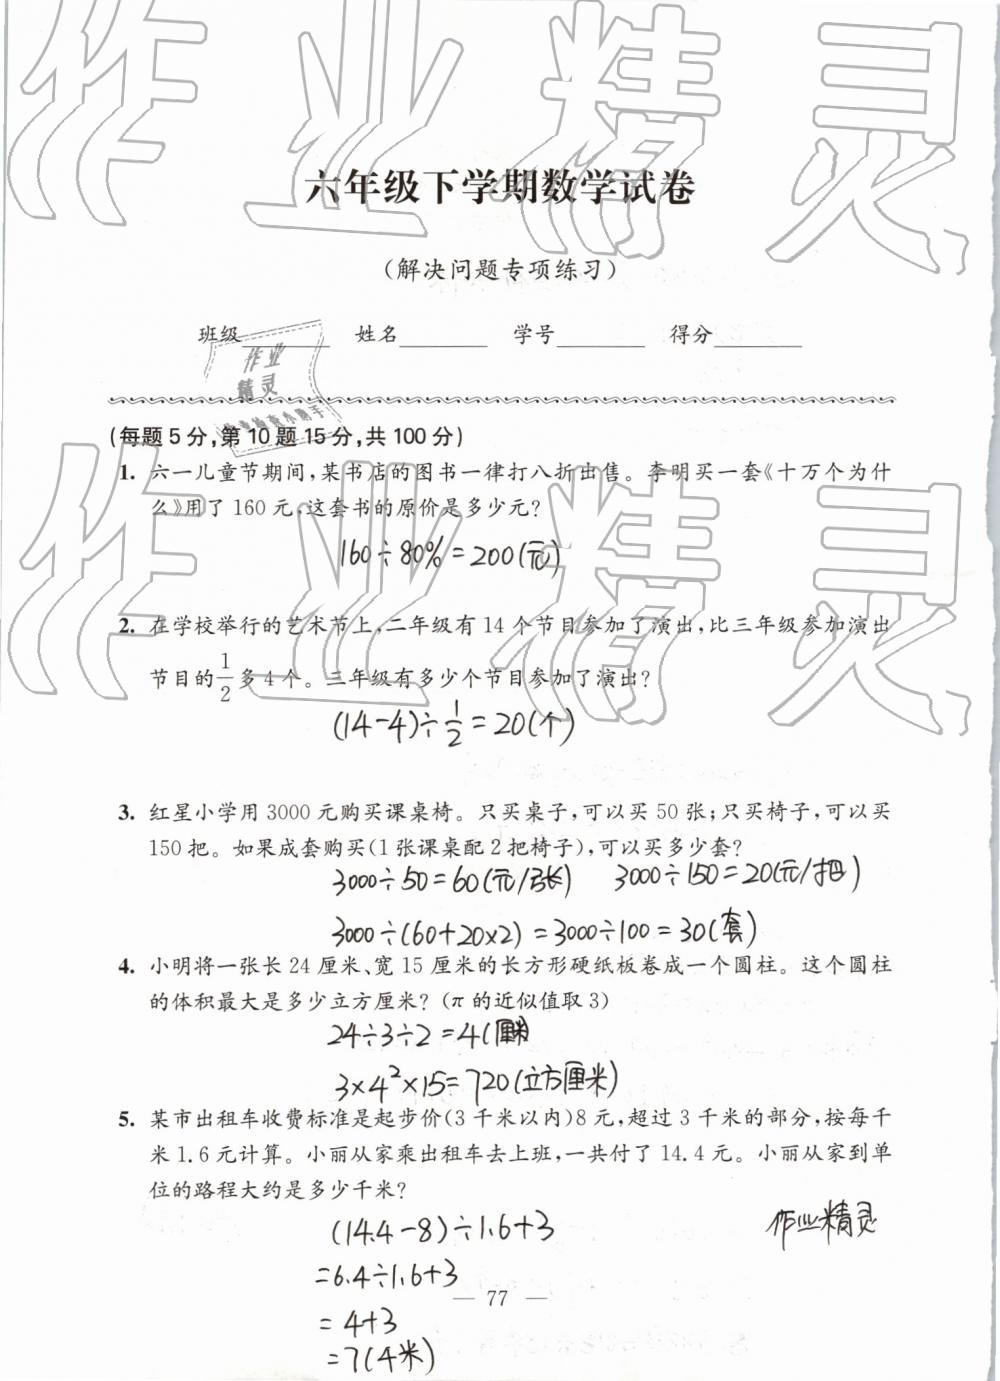 作业精灵
六年级下学期数学试卷
(解决问题专项练习)
班级 姓名 学号 得分
作业
精灵
(每题5分,第10题15分,共100分)
1. 六一儿童节期间,某书店的图书一律打八折出售。李明买一套《十万个为什
么》用了160元,这套书的原价是多少元?
160÷80%=200(元)
作业精灵
2. 在学校举行的艺术节上,二年级有14个节目参加了演出,比三年级参加演出
节目的1/2多4个。三年级有多少个节目参加了演出?
(14-4)÷1/2=20(个)
3. 红星小学用3000元购买课桌椅。只买桌子,可以买50张;只买椅子,可以买
150把。如果成套购买(1张课桌配2把椅子),可以买多少套?
3000÷50=60(元/张) 3000÷150=20(元/把)
3000÷(60+20×2)=3000÷100=30(套)
4. 小明将一张长24厘米、宽15厘米的长方形硬纸板卷成一个圆柱。这个圆柱
的体积最大是多少立方厘米?(π的近似值取3)
24÷3÷2=4(厘米)
3×4²×15=720(立方厘米)
5. 某市出租车收费标准是起步价(3千米以内)8元,超过3千米的部分,按每千
米1.6元计算。小丽从家乘出租车去上班,一共付了14.4元。小丽从家到单
位的路程大约是多少千米?
(14.4-8)÷1.6+3
=6.4÷1.6+3
=4+3
=7(千米)
作业精灵
— 77 —